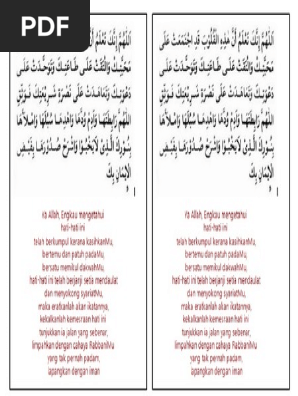 PDF
اَللّٰهُمَّ إِنَّكَ تَعْلَمُ أَنَّ
مَحَبَّتِكَ وَالْتَقَتْ عَلَى طَاعَتِكَ وَتَوَحَّدَتْ عَلَى
دَعْوَتِكَ وَتَعَاهَدَتْ عَلَى نُصْرَةِ شَرِيْعَتِكَ فَوَثِّقِ
اللّٰهُمَّ رَابِطَتَهَا وَأَدِمْ وُدَّهَا وَاهْدِهَا سُبُلَهَا وَامْلَأْهَا
بِنُوْرِكَ الَّذِيْ لَا يَخْبُوْا وَاشْرَحْ صُدُوْرَهَا بِفَيْضِ
الْإِيْمَانِ بِكَ
Ya Allah, Engkau mengetahui
hati-hati ini
telah berkumpul kerana kasihkanMu,
bertemu dan patuh padaMu,
bersatu memikul dakwahMu,
hati-hati ini telah berjanji setia mendaulat
dan menyokong syariatMu,
maka eratkanlah akan ikatannya,
kekalkanlah kemesraan hati ini
tunjukkan ia jalan yang sebenar,
limpahkan dengan cahaya RabbaniMu
yang tak pernah padam,
lapangkan dengan iman
اَللّٰهُمَّ إِنَّكَ تَعْلَمُ أَنَّ هٰذِهِ الْقُلُوْبَ قَدِ اجْتَمَعَتْ عَلَى
مَحَبَّتِكَ وَالْتَقَتْ عَلَى طَاعَتِكَ وَتَوَحَّدَتْ عَلَى
دَعْوَتِكَ وَتَعَاهَدَتْ عَلَى نُصْرَةِ شَرِيْعَتِكَ فَوَثِّقِ
اللّٰهُمَّ رَابِطَتَهَا وَأَدِمْ وُدَّهَا وَاهْدِهَا سُبُلَهَا وَامْلَأْهَا
بِنُوْرِكَ الَّذِيْ لَا يَخْبُوْا وَاشْرَحْ صُدُوْرَهَا بِفَيْضِ
الْإِيْمَانِ بِكَ
Ya Allah, Engkau mengetahui
hati-hati ini
telah berkumpul kerana kasihkanMu,
bertemu dan patuh padaMu,
bersatu memikul dakwahMu,
hati-hati ini telah berjanji setia mendaulat
dan menyokong syariatMu,
maka eratkanlah akan ikatannya,
kekalkanlah kemesraan hati ini
tunjukkan ia jalan yang sebenar,
limpahkan dengan cahaya RabbaniMu
yang tak pernah padam,
lapangkan dengan iman